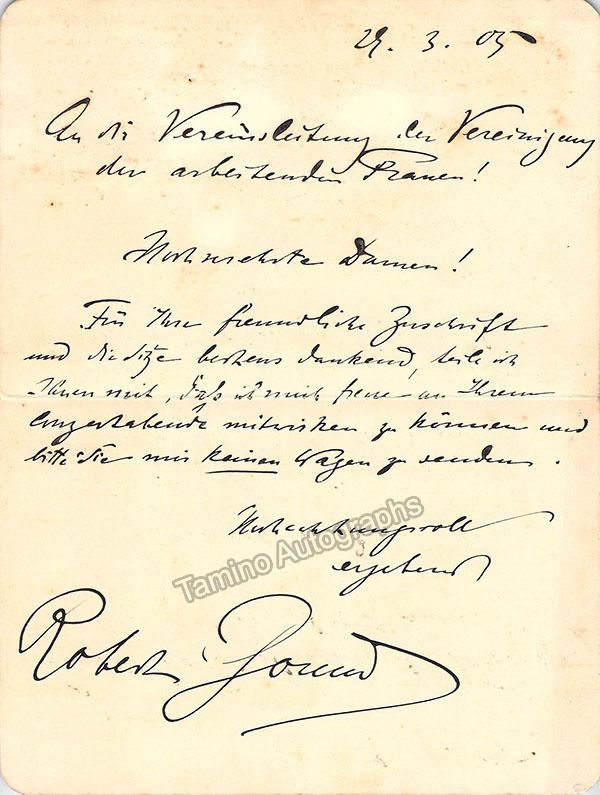 29. 3. 05
An die Vereinsleitung der Vereinigung
der arbeitenden Frauen!
Hochverehrte Damen!
Für Ihre freundliche Zuschrift
und die Sitze bestens dankend, teile ich
Ihnen mit, daß ich mich freue an Ihrem
Conzertabende mitwirken zu können und
bitte Sie mir keinen Wagen zu senden.
Hochachtungsvoll
ergebenst
Robert
Tamino Autographs